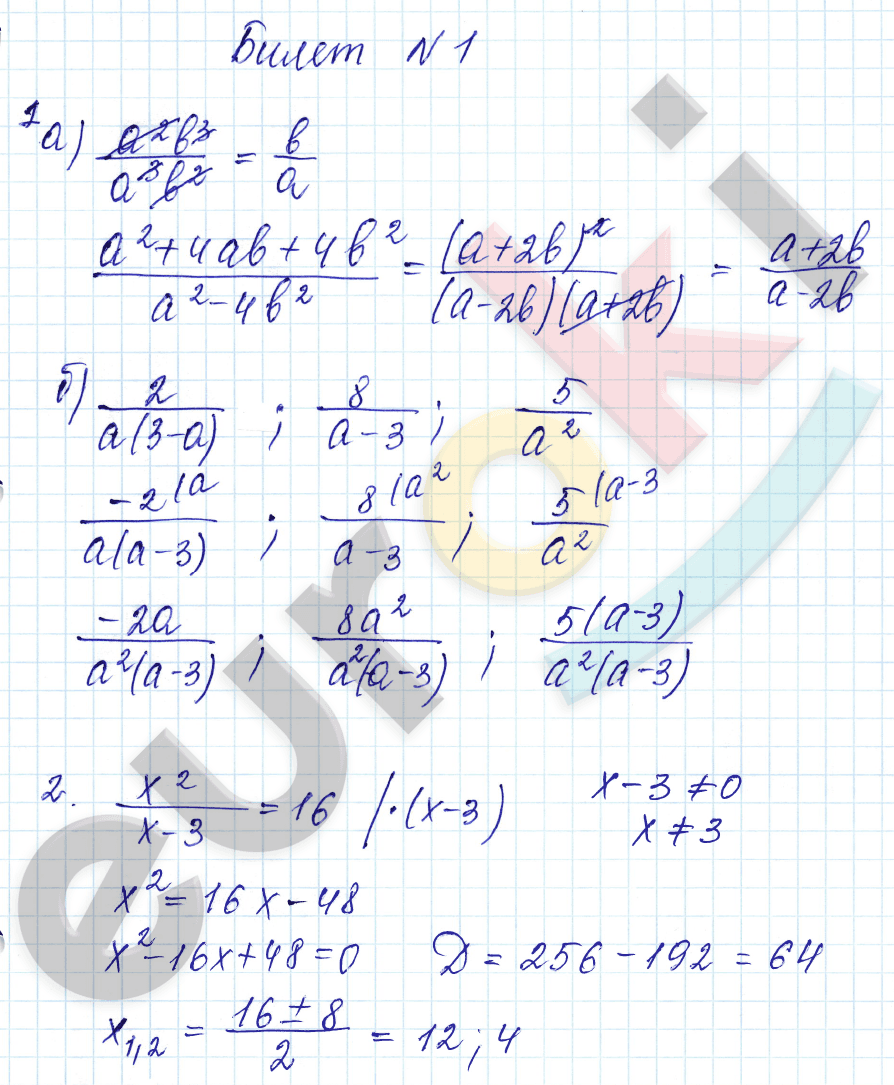 Билет №1
1 а) a²b³/a³b² = b/a
(a²+4ab+4b²)/(a²-4b²) = (a+2b)²/((a-2b)(a+2b)) = (a+2b)/(a-2b)
б) 2/(a(3-a)) ; 8/(a-3) ; 5/a²
-2(a/(a(a-3)) ; 8(a²/(a-3) ; 5(a-3/a²
-2a/(a²(a-3)) ; 8a²/(a²(a-3)) ; 5(a-3)/(a²(a-3))
2. x²/(x-3) = 16 /·(x-3) x-3≠0
x≠3
x² = 16x-48
x²-16x+48=0 D = 256-192 = 64
x₁,₂ = (16±8)/2 = 12; 4
euroki